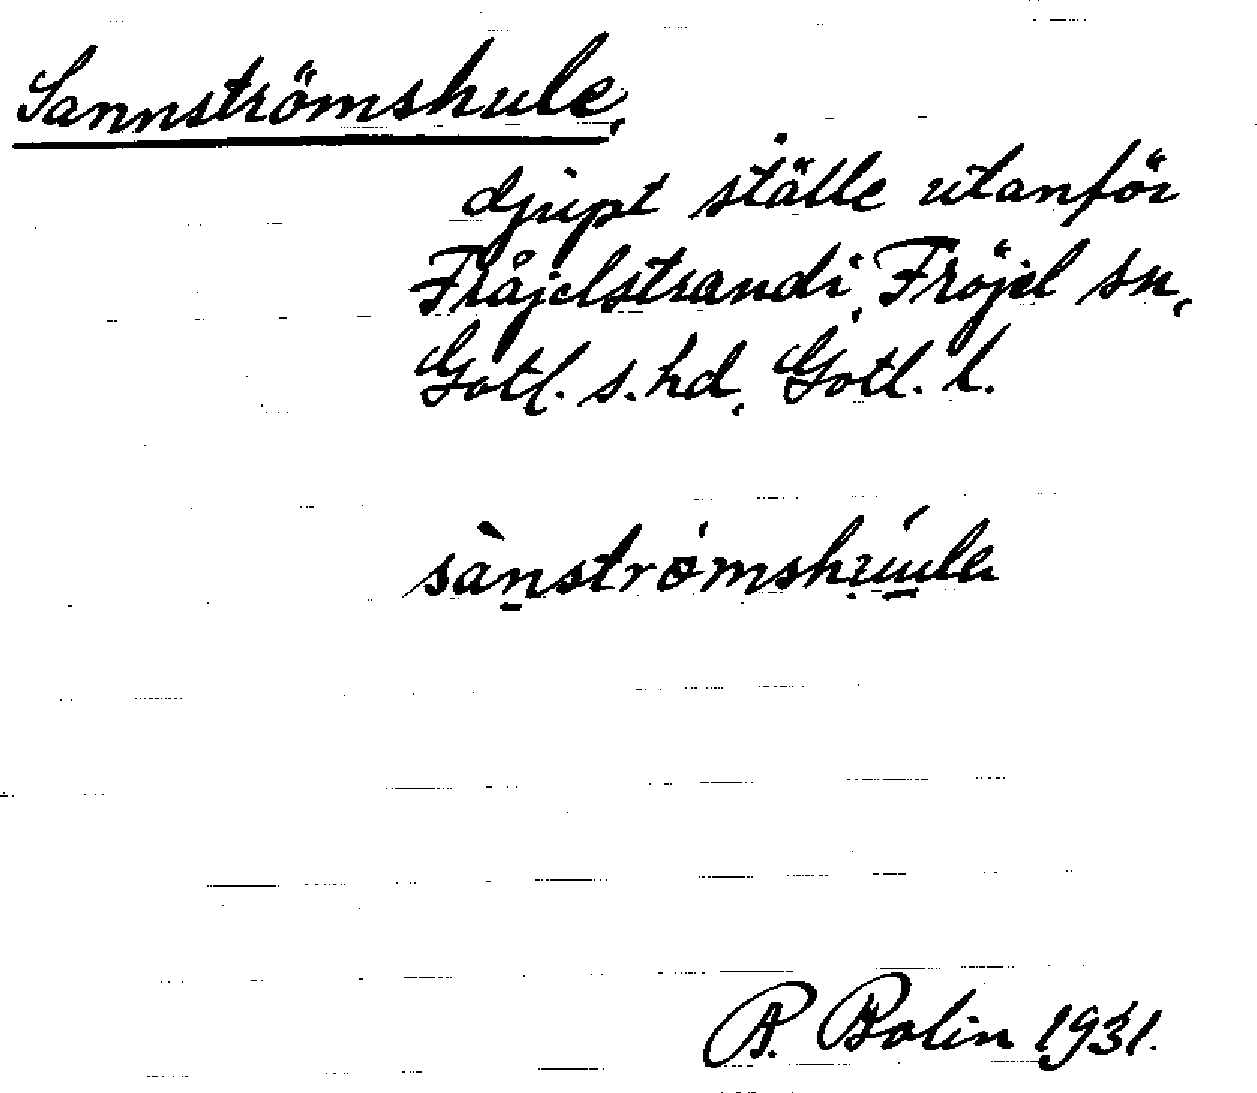 Sannströmshule,
djupt ställe utanför
Fråjelstrandi, Fröjel sn,
Gotl. s. hd, Gotl. l.
sànströmshúula
A. Bolin 1931.